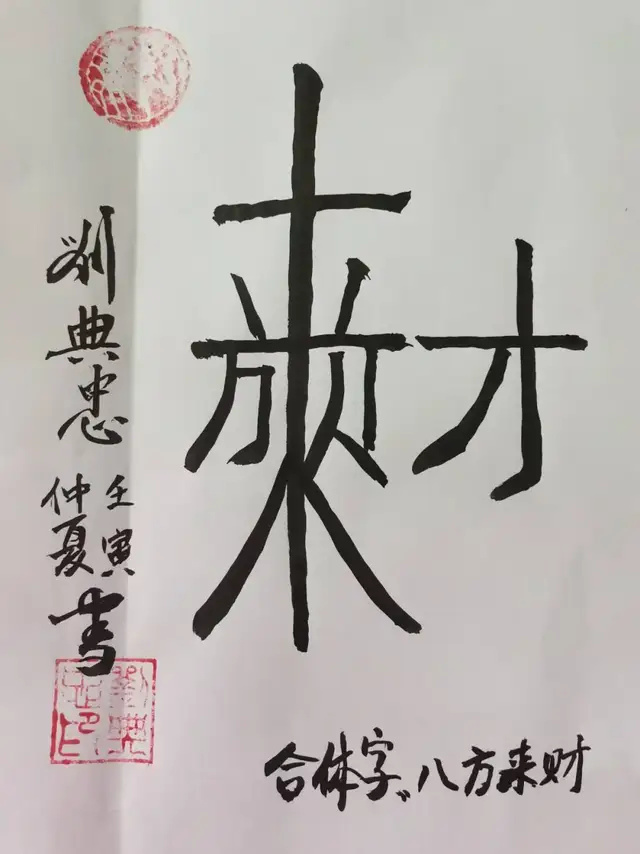 合体字"八方来财
刘典忠
壬寅
仲夏
书